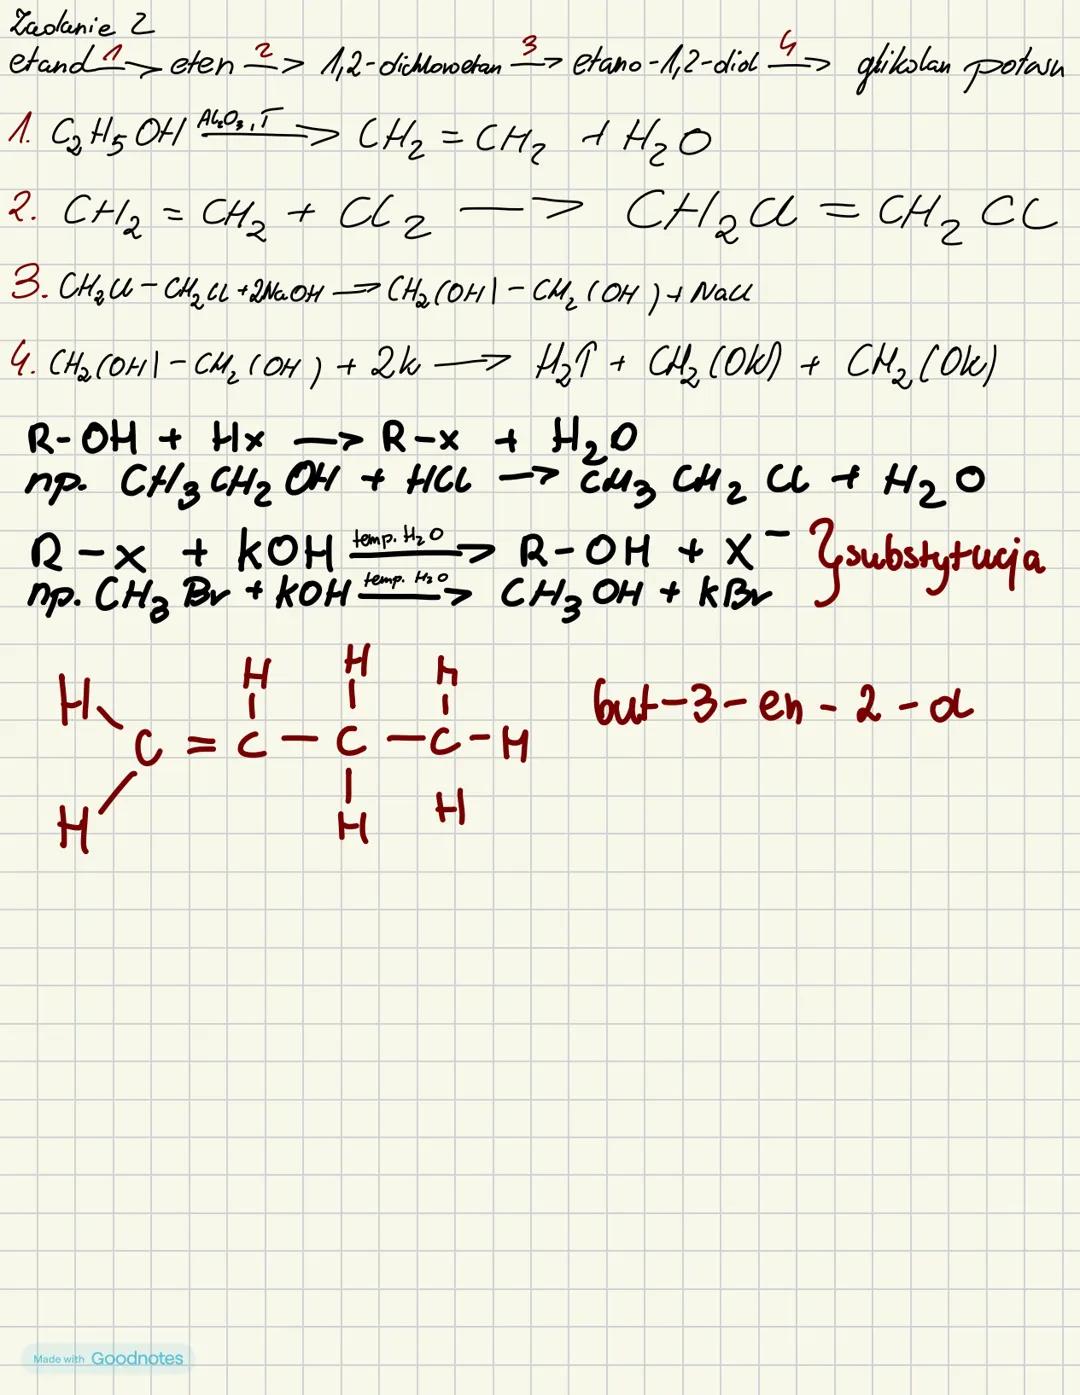 Zadanie 2
etanol 1→ eten 2→ 1,2-dichloroetan 3→ etano-1,2-diol 4→ glikolan potasu
1. C₂H₅OH Al₂O₃, T→ CH₂ = CH₂ + H₂O
2. CH₂ = CH₂ + Cl₂ → CH₂Cl = CH₂Cl
3. CH₂Cl - CH₂Cl + 2NaOH → CH₂(OH) - CH₂(OH) + NaCl
4. CH₂(OH) - CH₂(OH) + 2k → H₂↑ + CH₂(Ok) + CH₂(Ok)
R-OH + Hx → R-x + H₂O
np. CH₃CH₂OH + HCl → CH₃CH₂Cl + H₂O
R-x + kOH temp. H₂O→ R-OH + X⁻ } substytucja
np. CH₃Br + kOH temp. H₂O→ CH₃OH + kBr
H H H H
C = C - C - C - H but-3-en-2-ol
H H H
Made with Goodnotes